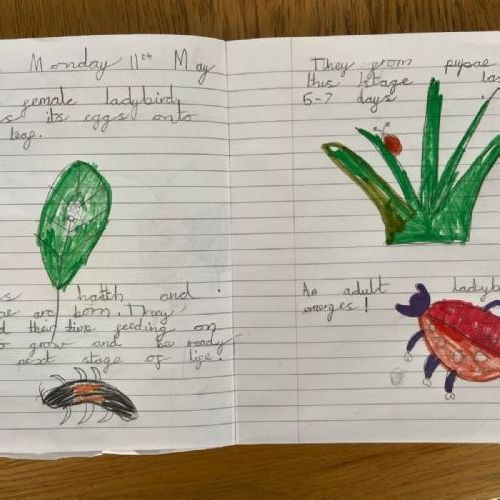 Monday 11th May
female ladybird
its eggs onto
leaf.
hatch and
are born. They
their time feeding on
grow and be ready
next stage of life.
They from pupae
this stage
5-7 days
An adult
emerges!